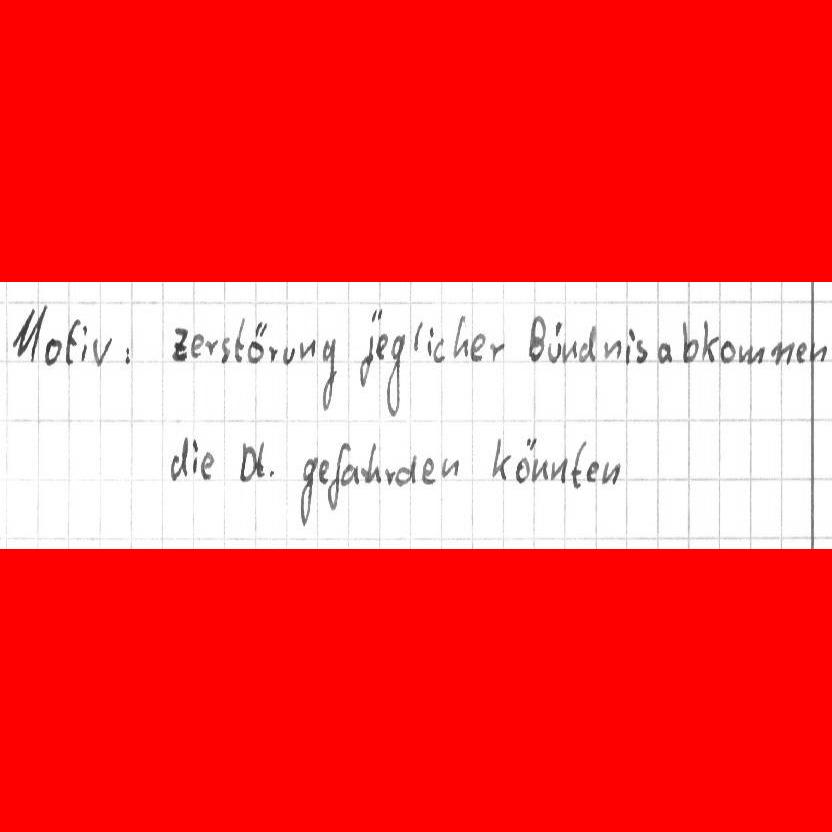 Motiv: Zerstörung jeglicher Bündnisabkommen
die Dt. gefahrden könnten